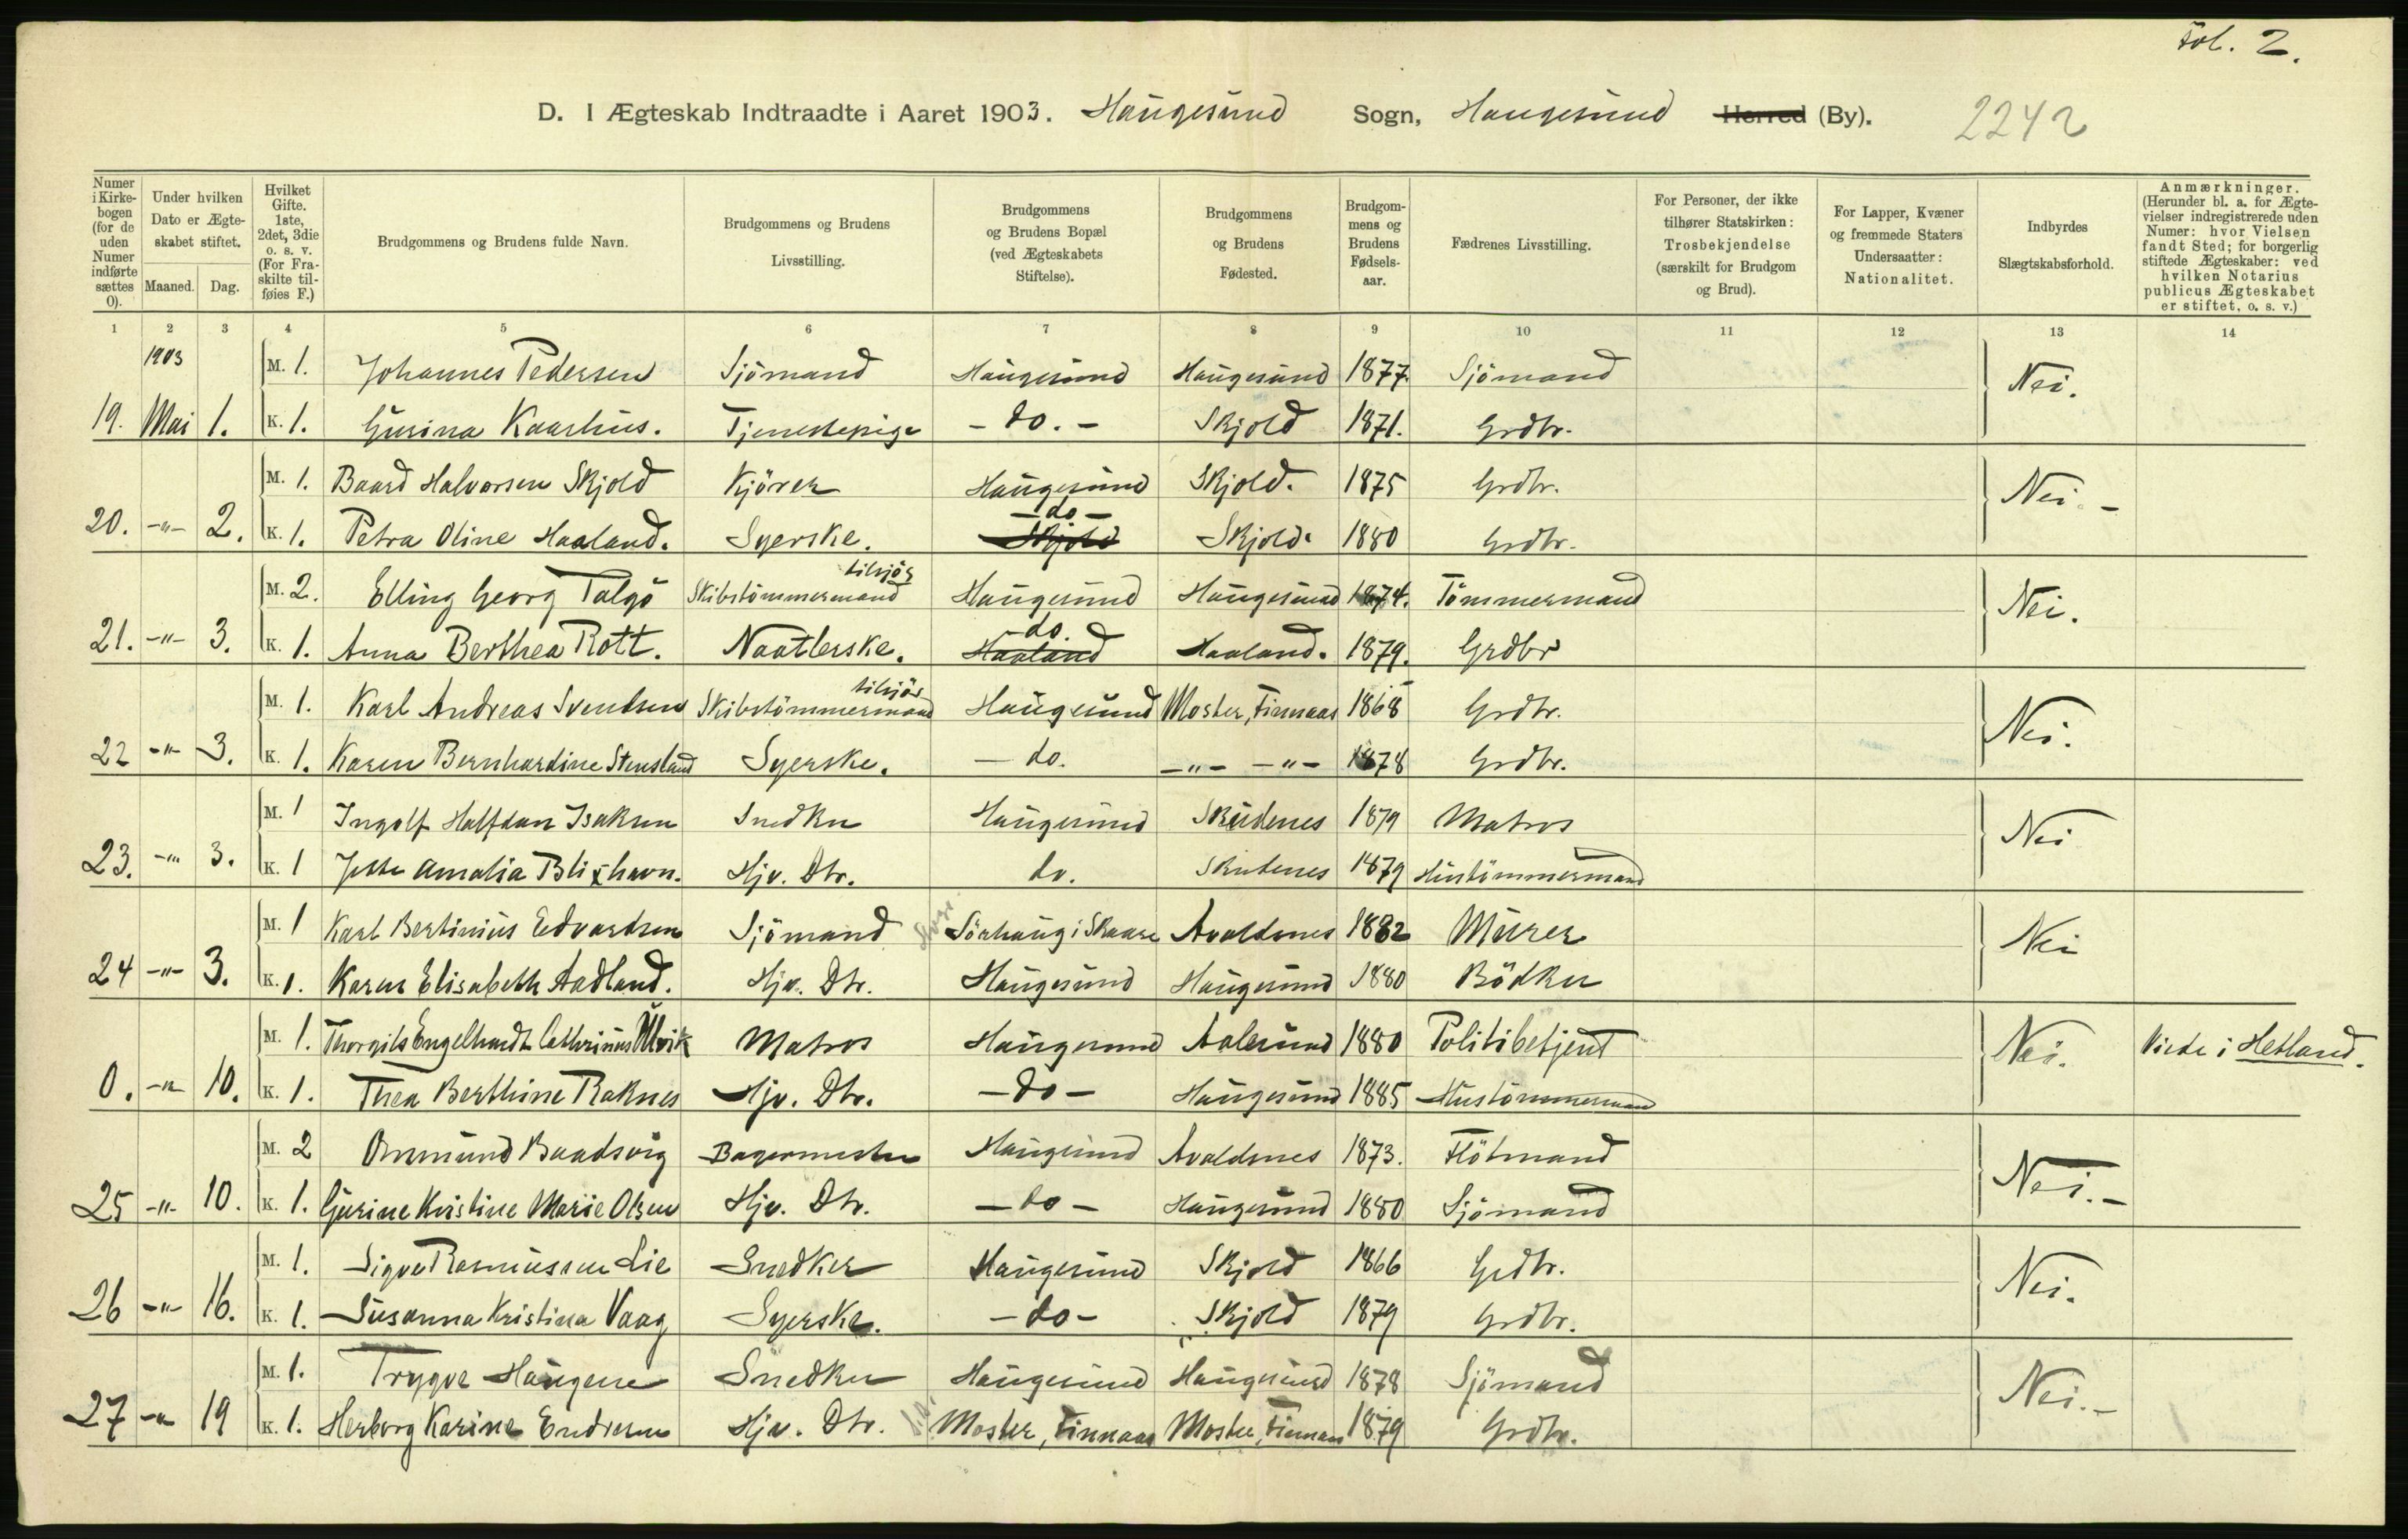 Fol. 2.
D. I Ægteskab Indtraadte i Aaret 1903. Haugesund Sogn, Haugesund Herred (By). 2242
Numer i Kirkebogen (for de uden Numer indførte sættes 0).
Under hvilken Dato er Ægteskabet stiftet.
Maaned. Dag.
Hvilket Gifte. 1ste, 2det, 3die o. s. v. (For Fraskilte tilføies F.)
Brudgommens og Brudens fulde Navn.
Brudgommens og Brudens Livsstilling.
Brudgommens og Brudens Bopæl (ved Ægteskabets Stiftelse).
Brudgommens og Brudens Fødested.
Brudgommens og Brudens Fødselsaar.
Fædrenes Livsstilling.
For Personer, der ikke tilhører Statskirken: Trosbekjendelse (særskilt for Brudgom og Brud).
For Lapper, Kvæner og fremmede Staters Undersaatter: Nationalitet.
Indbyrdes Slægtskabsforhold.
Anmærkninger. (Herunder bl. a. for Ægtevielser indregistrerede uden Numer: hvor Vielsen fandt Sted; for borgerlig stiftede Ægteskaber: ved hvilken Notarius publicus Ægteskabet er stiftet, o. s. v.)
1 2 3 4 5 6 7 8 9 10 11 12 13 14
1903 M. 1. Johannes Pedersen Sjömand Haugesund Haugesund 1877. Sjömand Nei.
19. Mai 1. K. 1. Gurina Kaarhus. Tjenestepige - do. - Skjold 1871. Grdbr.
M. 1. Baard Halvorsen Skjold Kjörer Haugesund Skjold. 1875 Grdbr. Nei. -
20. -"- 2. K. 1. Petra Oline Haaland. Syerske. - do - Skjold Skjold. 1880 Grdbr.
M. 2. Elling Georg Talgö Skibstömmermand tilsjös Haugesund Haugesund 1874. Tömmermand Nei.
21. -"- 3. K. 1. Anna Berthea Rott. Naatlerske. - do. Haaland Haaland. 1879. Grdbr
M. 1. Karl Andreas Svendsen Skibstömmermand tilsjös Haugesund Moster, Finnaas 1868 Grdbr. Nei.
22 -"- 3. K. 1. Karen Bernhardine Stensland Syerske. - do. -"- -"- 1878 Grdbr.
M. 1 Ingolf Halfdan Isaksen Snedker Haugesund Skudenes 1879 Matros Nei
23. -"- 3. K. 1 Jette Amalia Blixhavn. Hjv. Dtr. do. Skudenes 1879 Hustömmermand
M. 1 Karl Bertinius Edvardsen Sjömand Sörhaug i Skaare Avaldsnes 1882 Murer Nei
24 -"- 3. K. 1. Karen Elisabeth Aadland. Hjv. Dtr. Haugesund Haugesund 1880 Bödker
M. 1. Thorgils Engelhardt Cathrinus Ulvik Matros Haugesund Aalesund 1880 Politibetjent Nei. Viede i Hetland.
0. -"- 10. K. 1. Thea Berthine Raknes Hjv. Dtr. - do - Haugesund 1885 Hustömmermand
M. 2 Ommund Baadsvig Bagermester Haugesund Avaldsnes 1873. Flötmand Nei. -
25 -"- 10. K. 1. Gurine Kristine Marie Olsen Hjv. Dtr. - do - Haugesund 1880 Sjömand
M. 1. Sigve Rasmussen Lie Snedker Haugesund Skjold 1866 Grdbr. Nei.
26 -"- 16. K. 1. Susanna Kristina Vaag Syerske. - do - Skjold 1879 Grdbr.
M. 1. Trygve Haugene Snedker Haugesund Haugesund 1878 Sjömand Nei. -
27 -"- 19 K. 1. Herborg Karine Endresen Hjv. Dtr. Moster, Finnaas Moster, Finnaas 1879 Grdbr.